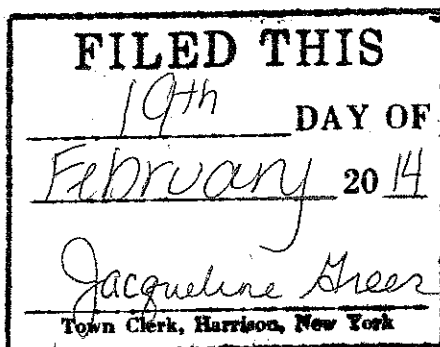 FILED THIS
19th DAY OF
February 20 14
Jacqueline Greer
Town Clerk, Harrison, New York